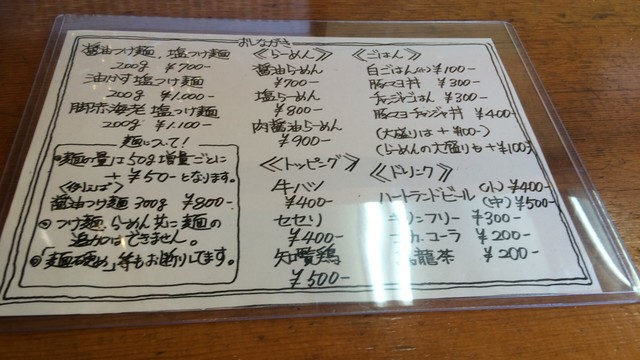 おしながき
醤油つけ麺、塩つけ麺
200g ¥700-
油かす塩つけ麺
200g ¥1.000-
脚赤海老 塩つけ麺
200g ¥1.100-
麺について!
麺の量は50g増量ごとに
+ ¥50-となります。
<例えば>
醤油つけ麺 300g ¥800-
つけ麺、らーめん共に麺の
追加はできません。
「麺硬め」等もお断りしてます。
≪らーめん≫
醤油らーめん
¥700-
塩らーめん
¥800-
肉醤油らーめん
¥900-
≪トッピング≫
牛ハツ
¥400-
セセリ
¥400-
知覧鶏
¥500-
≪ごはん≫
白ごはん(小) ¥100-
豚マヨ丼 ¥300-
チャンジャごはん ¥300-
豚マヨチャンジャ丼 ¥400-
(大盛りは + ¥100-)
(らーめんの大盛りも+¥100-)
≪ドリンク≫
ハートランドビール (小) ¥400-
(中) ¥500-
キリンフリー ¥300-
コーラ ¥200-
烏龍茶 ¥200-